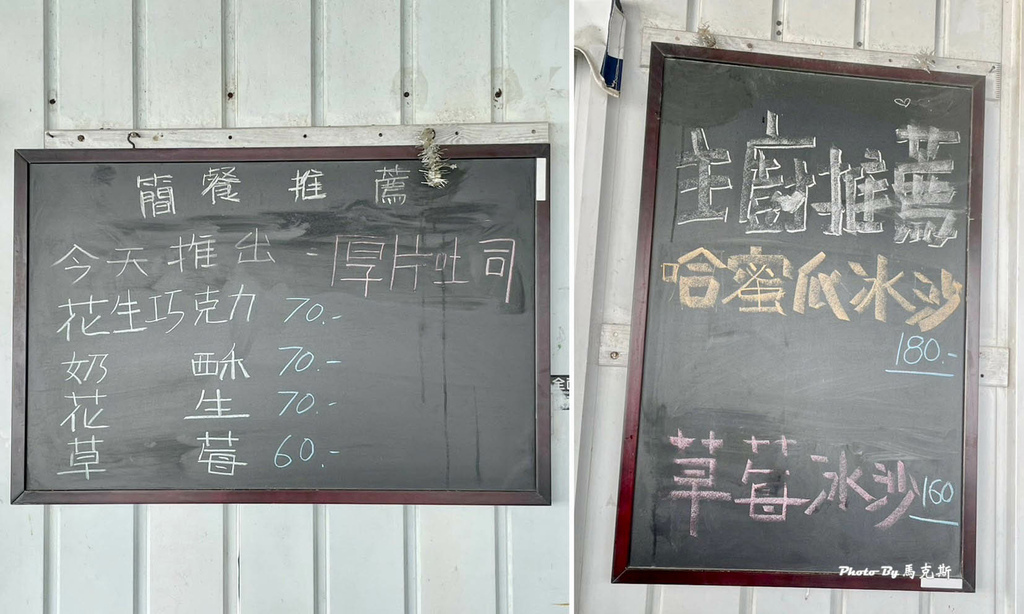 簡餐推薦
今天推出：厚片吐司
花生巧克力 70.-
奶酥 70.-
花生 70.-
草莓 60.-
主廚推薦
哈蜜瓜冰沙
180.-
草莓冰沙 160
Photo By 馬克斯